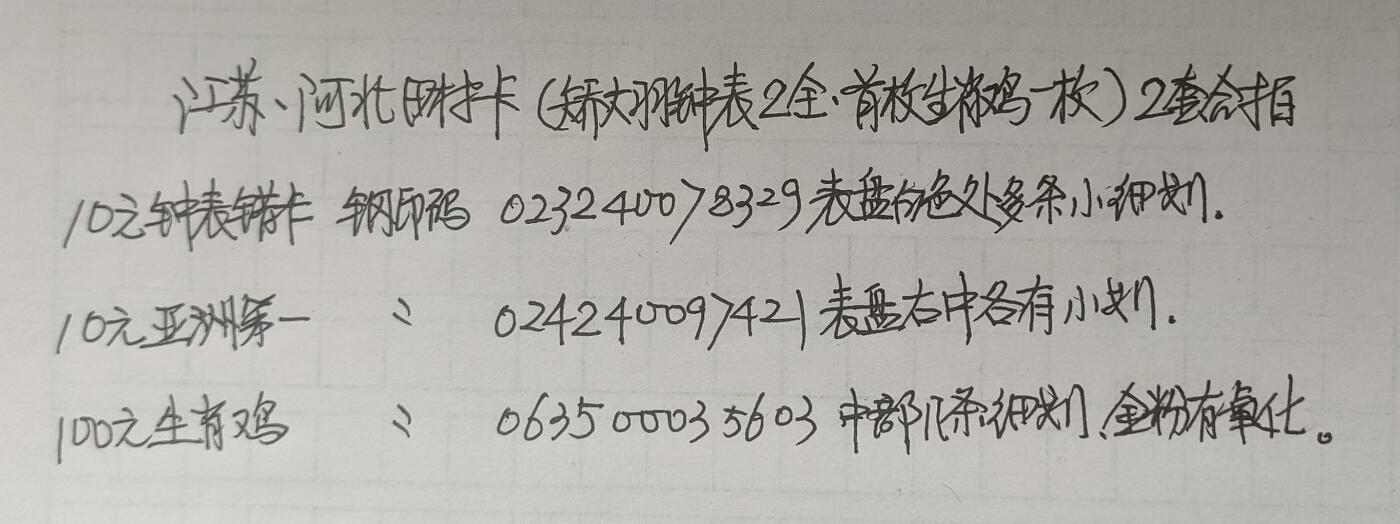 江苏、河北田村卡(矫大羽钟表2全·首枚生肖鸡一枚)2套合拍
10元钟表错卡 钢印码 023240078329表盘白色处多条小细划.
10元亚洲第一 〃 024240097421表盘右中各有小划.
100元生肖鸡 〃 063500035603中部几条细划、金粉有氧化。